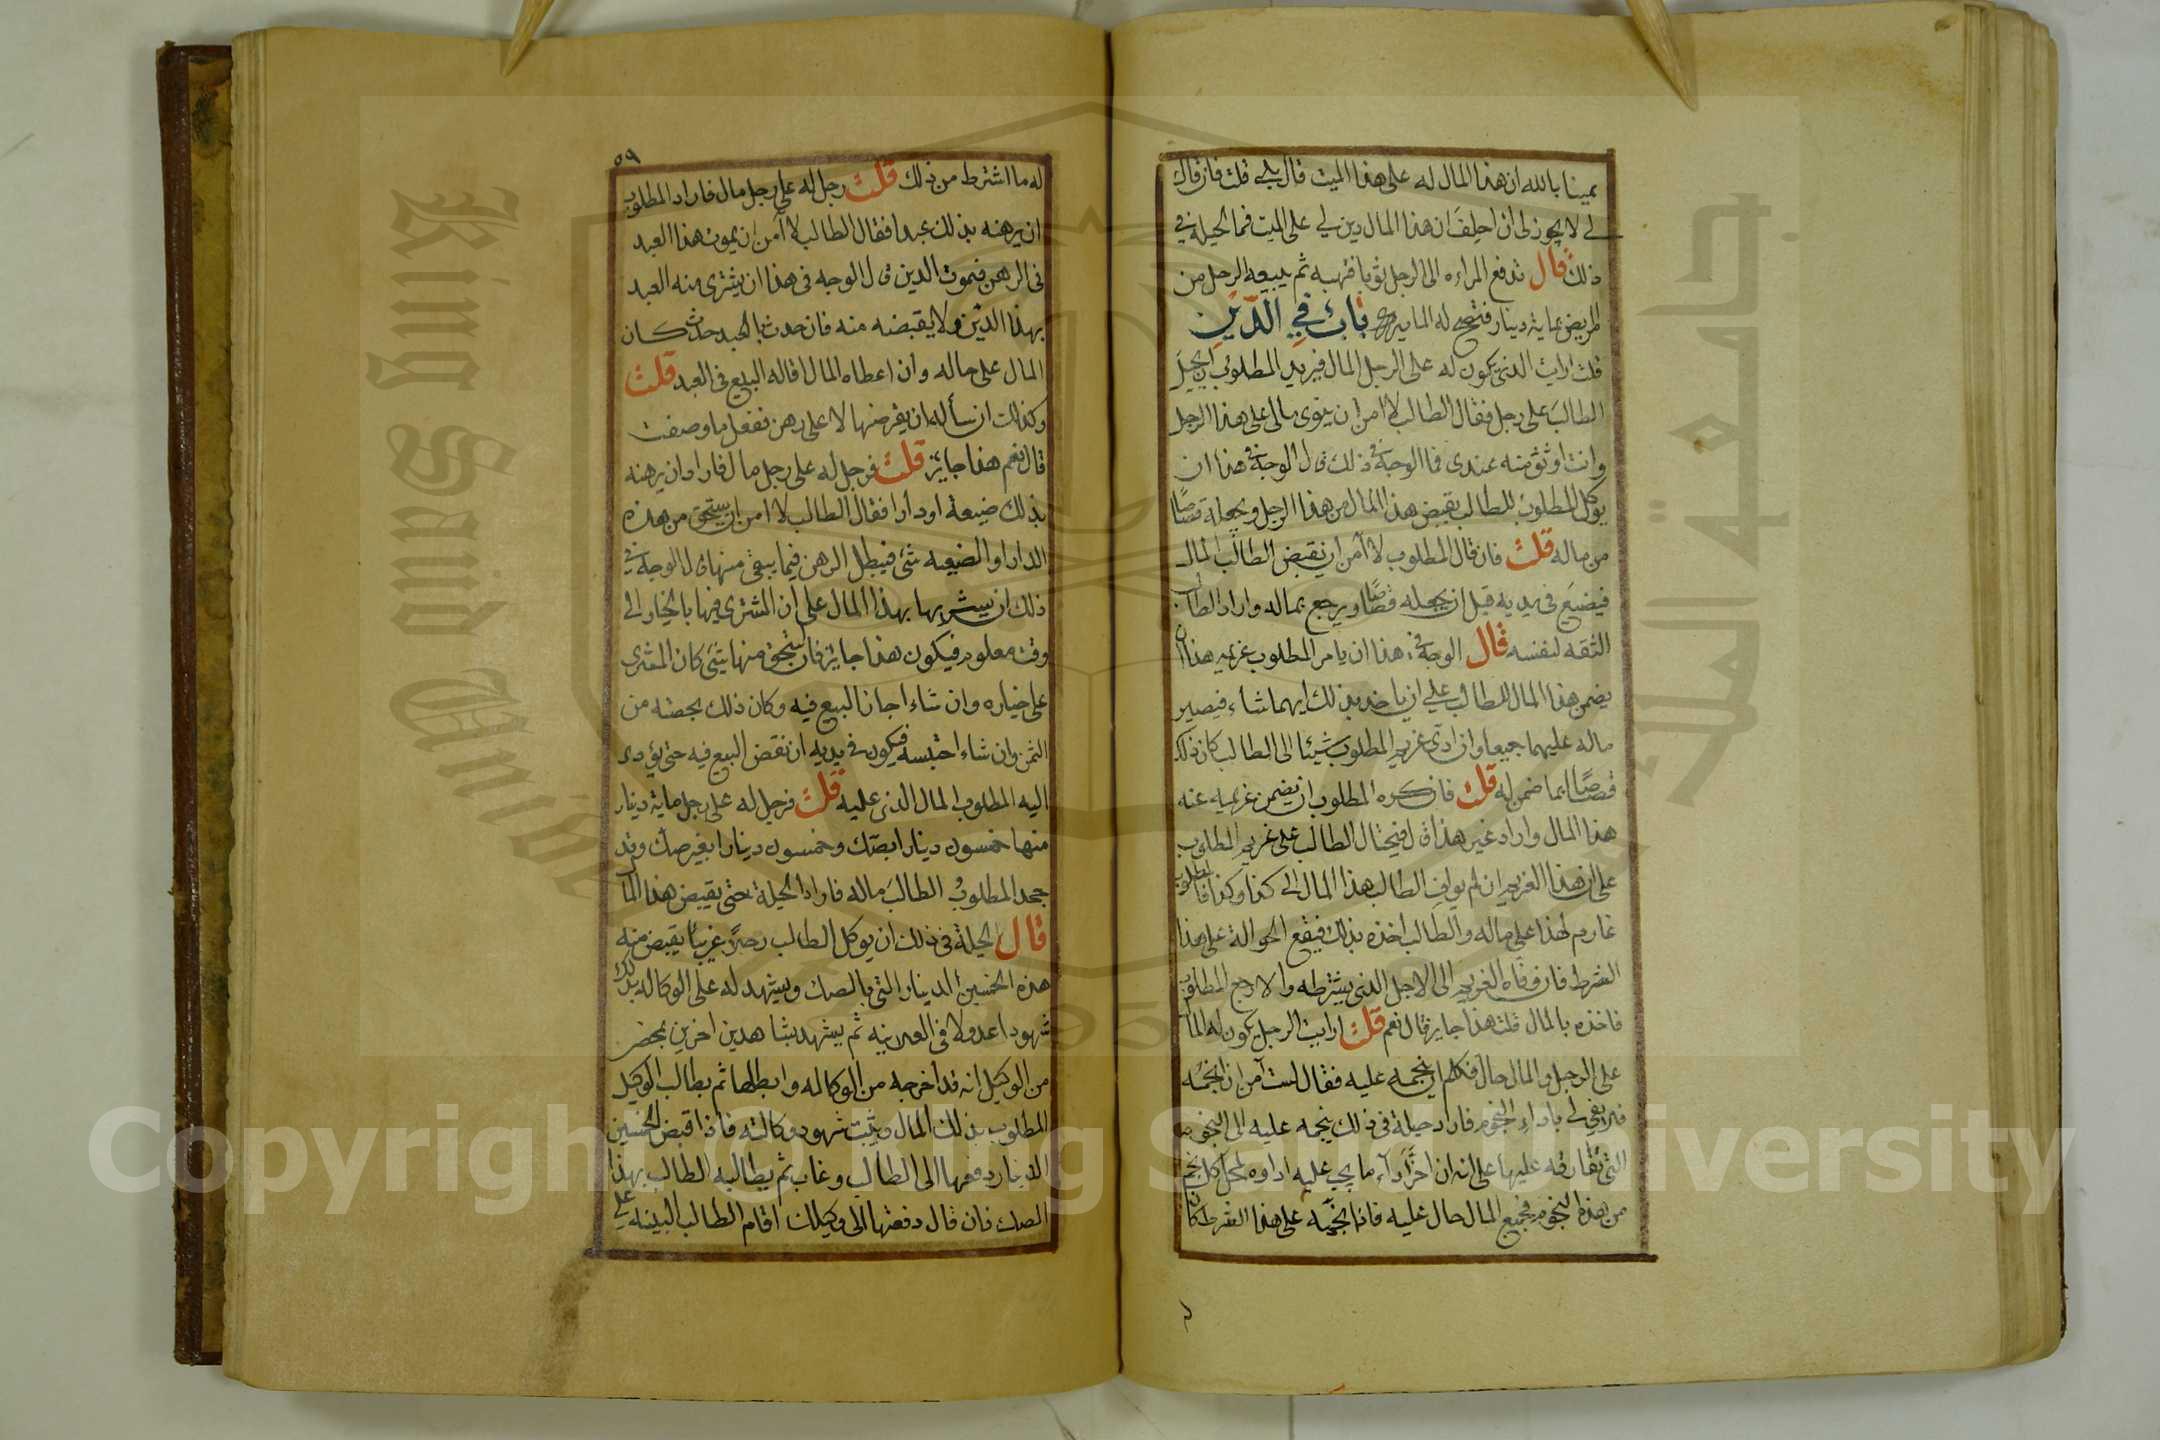 يمينا بالله ان هذا المال له على هذا الميت قال بلى قلت فان قال
لي لا يجوز لي ان احلف ان هذا المال دين لي على الميت فما الحيلة في
ذلك قال تدفع المراه الى الرجل ثوبا فتهبه ثم يبيعه الرجل من
المريض بماية دينار فتصح له الماية باب في الدين
قلت ارايت الذي يكون له على الرجل المال فيريد المطلوب ان يحيل
الطالب على رجل فقال الطالب لا امن ان يتوى مالى على هذا الرجل
وانت اوثق منه عندى فما الوجه في ذلك قال الوجه في هذا ان
يوكل المطلوب للطالب بقبض هذا المال من هذا الرجل ويجعله قصاصا
من ماله قلت فان قال المطلوب لا آمن ان يقبض الطالب المال
فيضيع في يديه قبل ان يجعله قصاصا ويرجع بماله واراد الطالب
الثقه لنفسه قال الوجه في هذا ان يامر المطلوب غريمه هذا ان
يضمن هذا المال للطالب على ان ياخذ بذلك ايهما شاء فيصير
ماله عليهما جميعا وان ادى غريم المطلوب شيئا الى الطالب كان ذلك
قصاصا بما ضمن له قلت فان كره المطلوب ان يضمن غريمه عنه
هذا المال واراد غير هذا قال فيحتال الطالب على غريم المطلوب
على ان هذا الغريم ان لم يواف الطالب هذا المال الى كذا وكذا فالمطلوب
غارم لهذا على ماله والطالب اخذه بذلك فيقع الحوالة على هذا
الشرط فان وفاه الغريم الى الاجل الذى يشترطه والا رجع المطلوب
فاخذه بالمال قلت هذا جايز قال نعم قلت ارايت الرجل يكون له المال
على الرجل والمال حال فكلم ان ينجمه عليه فقال لست آمن ان انجمه
فلا يفي لي باداء النجوم فاراد حيلة في ذلك ينجمه عليه الى النجوم
التي يفارقه عليها على انه ان اخر اداء ما يجب عليه اداوه لمحل كل نجم
من هذه النجوم فجميع المال حال عليه فاذا نجمه على هذا الشرط كان
٥٩
له ما اشترط من ذلك قلت رجل له على رجل مال فاراد المطلوب
ان يرهنه بذلك عبدا فقال الطالب لا آمن ان يموت هذا العبد
في الرهن فيموت الدين قال الوجه في هذا ان يشترى منه العبد
بهذا الدين ولا يقبضه منه فان حدث بالعبد حدث كان
المال على حاله وان اعطاه المال اقاله البيع في العبد قلت
وكذلك ان سأله ان يقرضه مالا على رهن ففعل ما وصفت
قال نعم هذا جايز قلت فرجل له على رجل مال فاراد ان يرهنه
بذلك ضيعة او دارا فقال الطالب لا امن ان يستحق من هذه
الدار او الضيعه شئ فيبطل الرهن فيما يبقى منها قال الوجه في
ذلك ان يشتريها بهذا المال على ان المشترى فيها بالخيار الى
وقت معلوم فيكون هذا جايز فان استحق منها شئ كان المشترى
على خياره وان شاء اجاز البيع فيه وكان ذلك بحصته من
الثمن وان شاء احتبسه فيكون في يديه ان نقض البيع فيه حتى يؤدى
اليه المطلوب المال الذى عليه قلت فرجل له على رجل ماية دينار
منها خمسون دينارا بصك وخمسون دينارا بغير صك وقد
جحد المطلوب الطالب ماله فاراد الحيلة حتى يقبض هذا المال
قال الحيلة في ذلك ان يوكل الطالب رجلا غريبا يقبض منه
هذه الخمسين الدينار التي بالصك ويشهد له على الوكاله بذلك
شهودا عدولا في العلانيه ثم يشهد بشاهدين اخرين بمحضر
من الوكيل انه قد اخرجه من الوكالة وابطلها ثم يطالب الوكيل
المطلوب بذلك المال ويثبت شهود وكالته فاذا قبض الخمسين
الدينار دفعها الى الطالب وغاب ثم يطالبه الطالب بهذا
الصك فان قال دفعتها الى وكيلك اقام الطالب البينه على